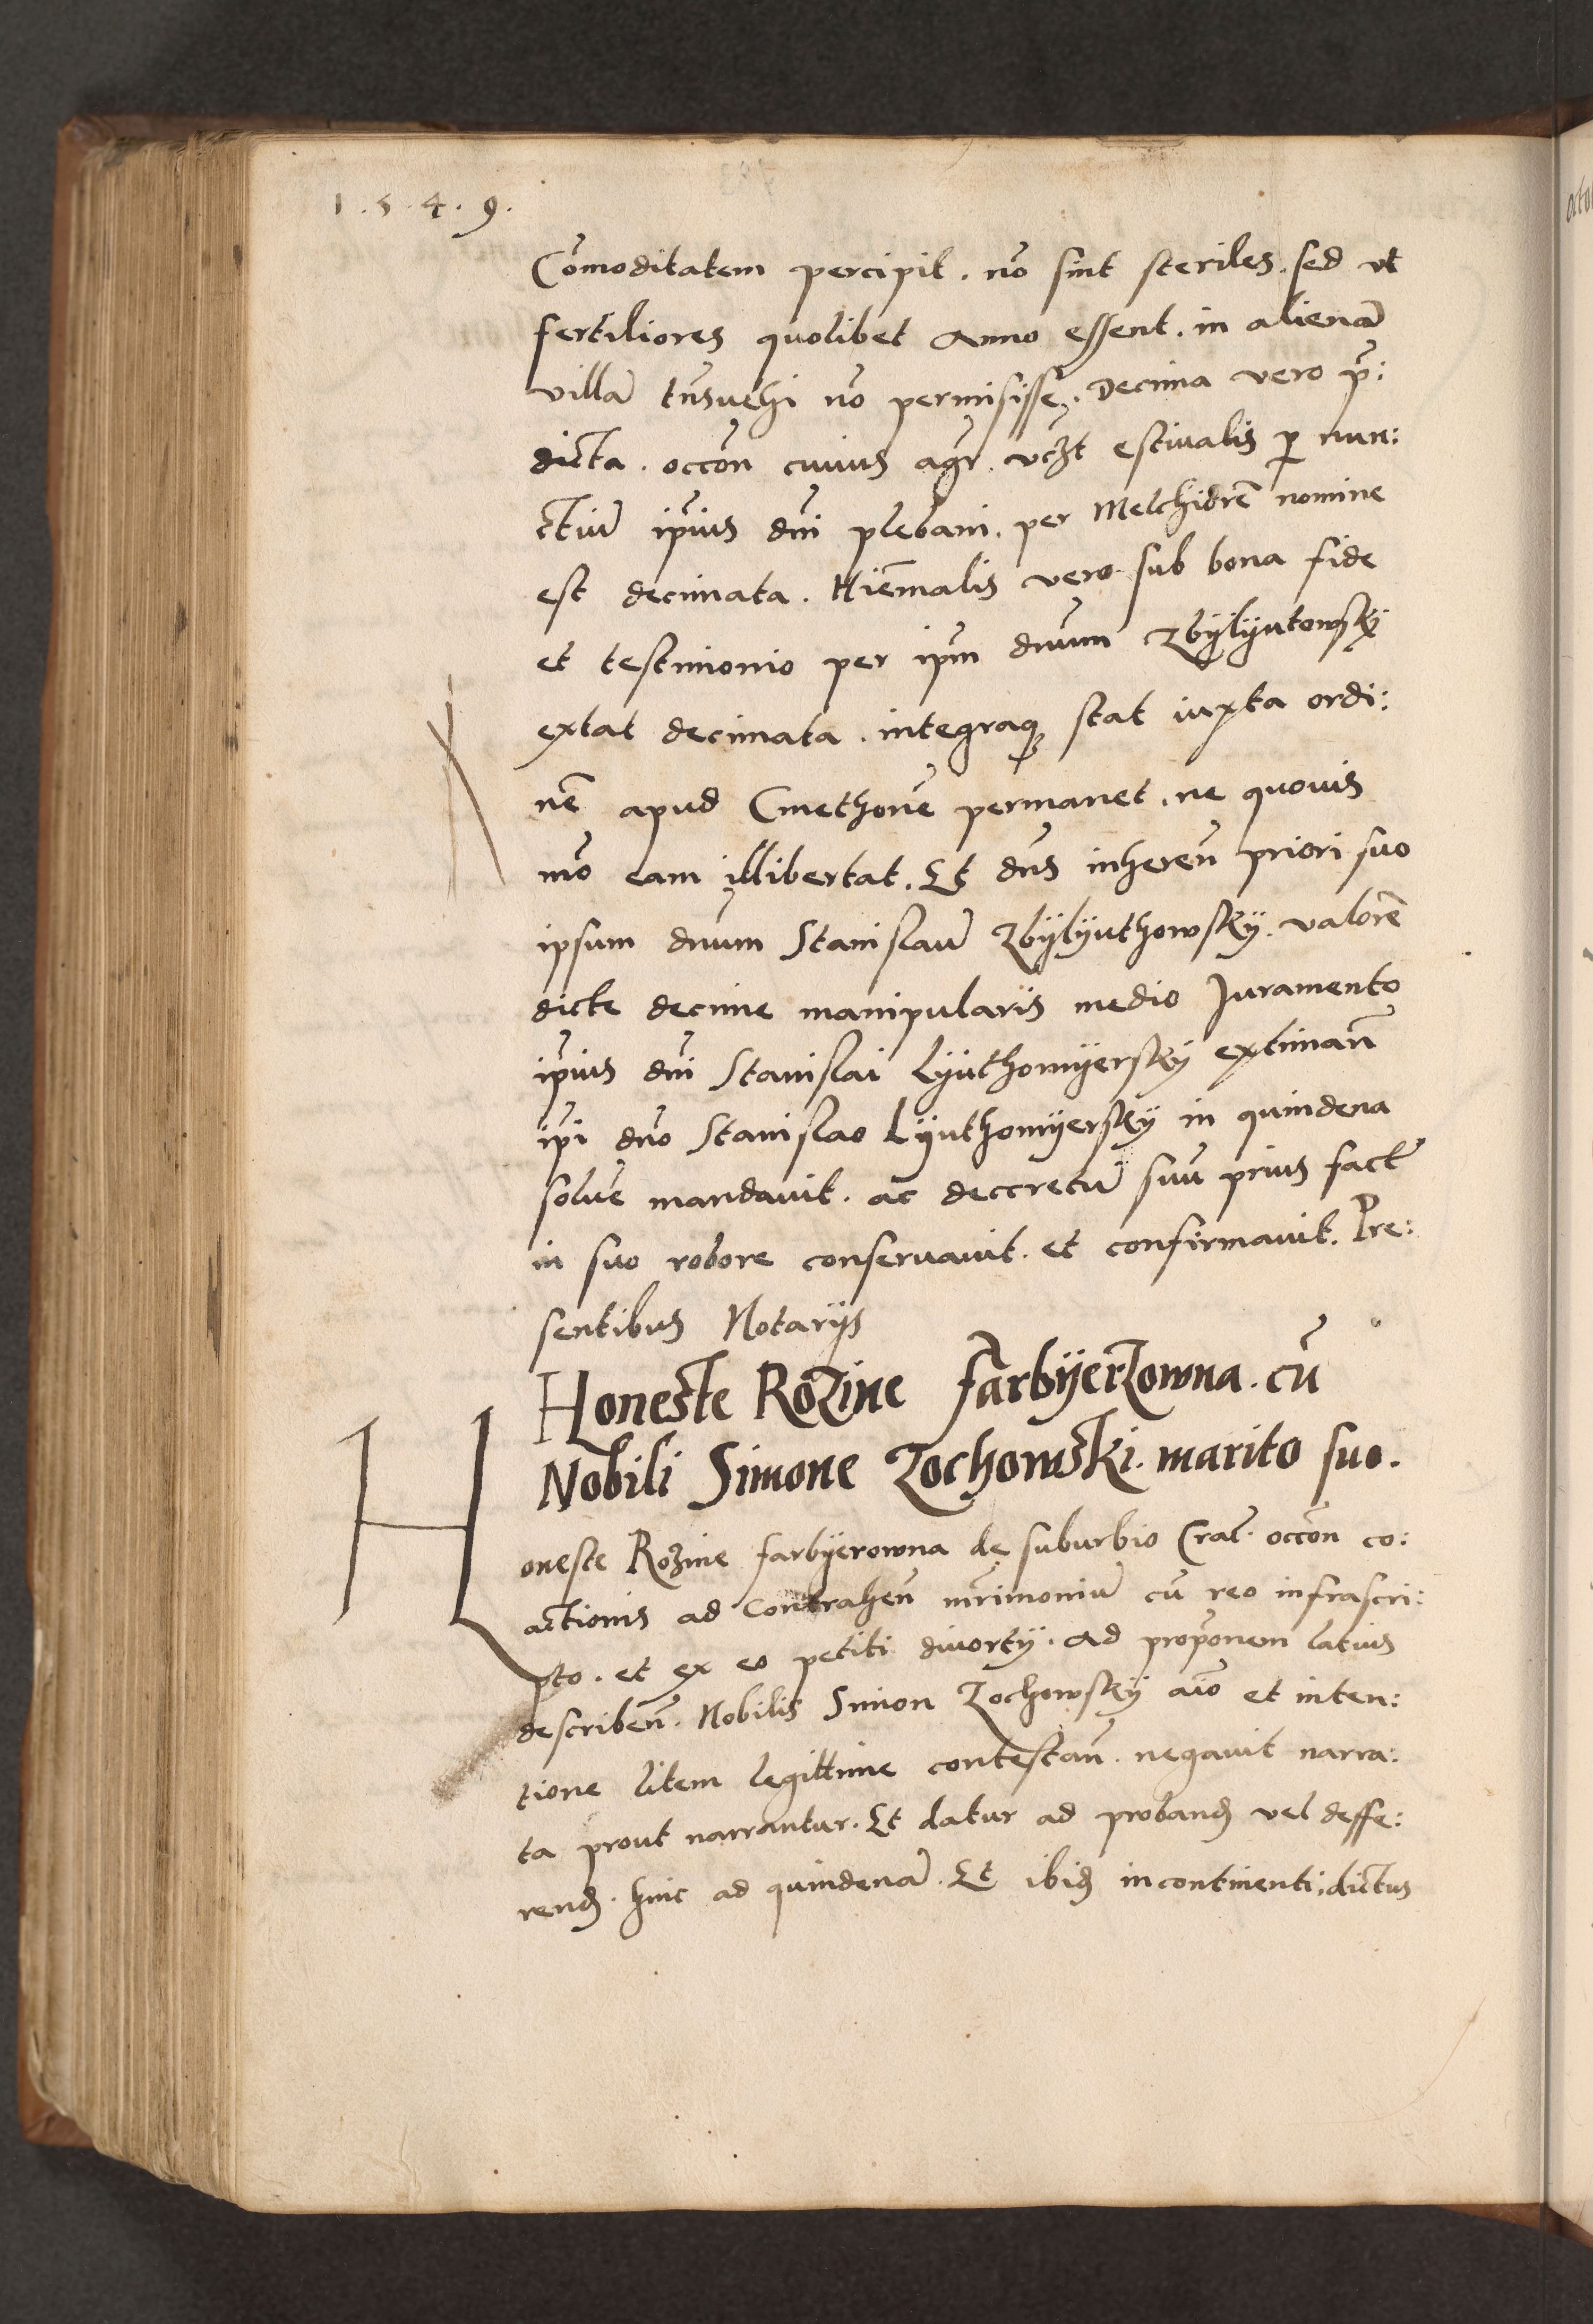 1.5.4.9.
Com̄oditatem percipit. nō sint steriles. sed vt
fertiliores quolibet Anno essent. in alienā
villā tn̄suehi nō permisisse. Decima vero p̄:
dicta. occōn cuius agr̄. vcȝt estiualis p nun:
ctiū ip̄ius dn̄i plebani. per Melchiorē nomine
est decimata. Hiem̄alis vero sub bona fide
et testimonio per ip̄m dnum Zbylyutowsky
extat decimata. integraqȝ stat iuxta ordi:
nē apud Cmethonē permanet. ne quouis
mō eam illibertat. Et dn̄s inheren̄ priori suo
ipsum dnum Stanislaū Zbylyuthowsky. valorē
dicte decime manipularis medio Juramento
ip̄ius dn̄i Stanislai Lyuthomyersky extiman̄
ip̄i dn̄o Stanislao Lyuthomyersky in quindena
soluē mandauit. ac decretū suū prius factū
in suo robore conseruauit. et confirmauit. Pre:
sentibus Notarijs
Honeste Rozine Farbyerzowna. cū
Nobili Simone Zochowski. marito suo.
Honeste Rozine farbyerowna de suburbio Crac̄. occōn co:
actionis ad Contrahen̄ mr̄imoniū cū reo infrascri:
pto. et ex eo petiti diuortij. Ad propōnem latius
describen̄. Nobilis Simon Zochowsky aīo et inten:
tione litem legittime contestan̄. negauit narra:
ta prout narrantur. Et datur ad probandȝ vel deffe:
rendȝ. hinc ad quindenā. Et ibidȝ incontinenti, dictus